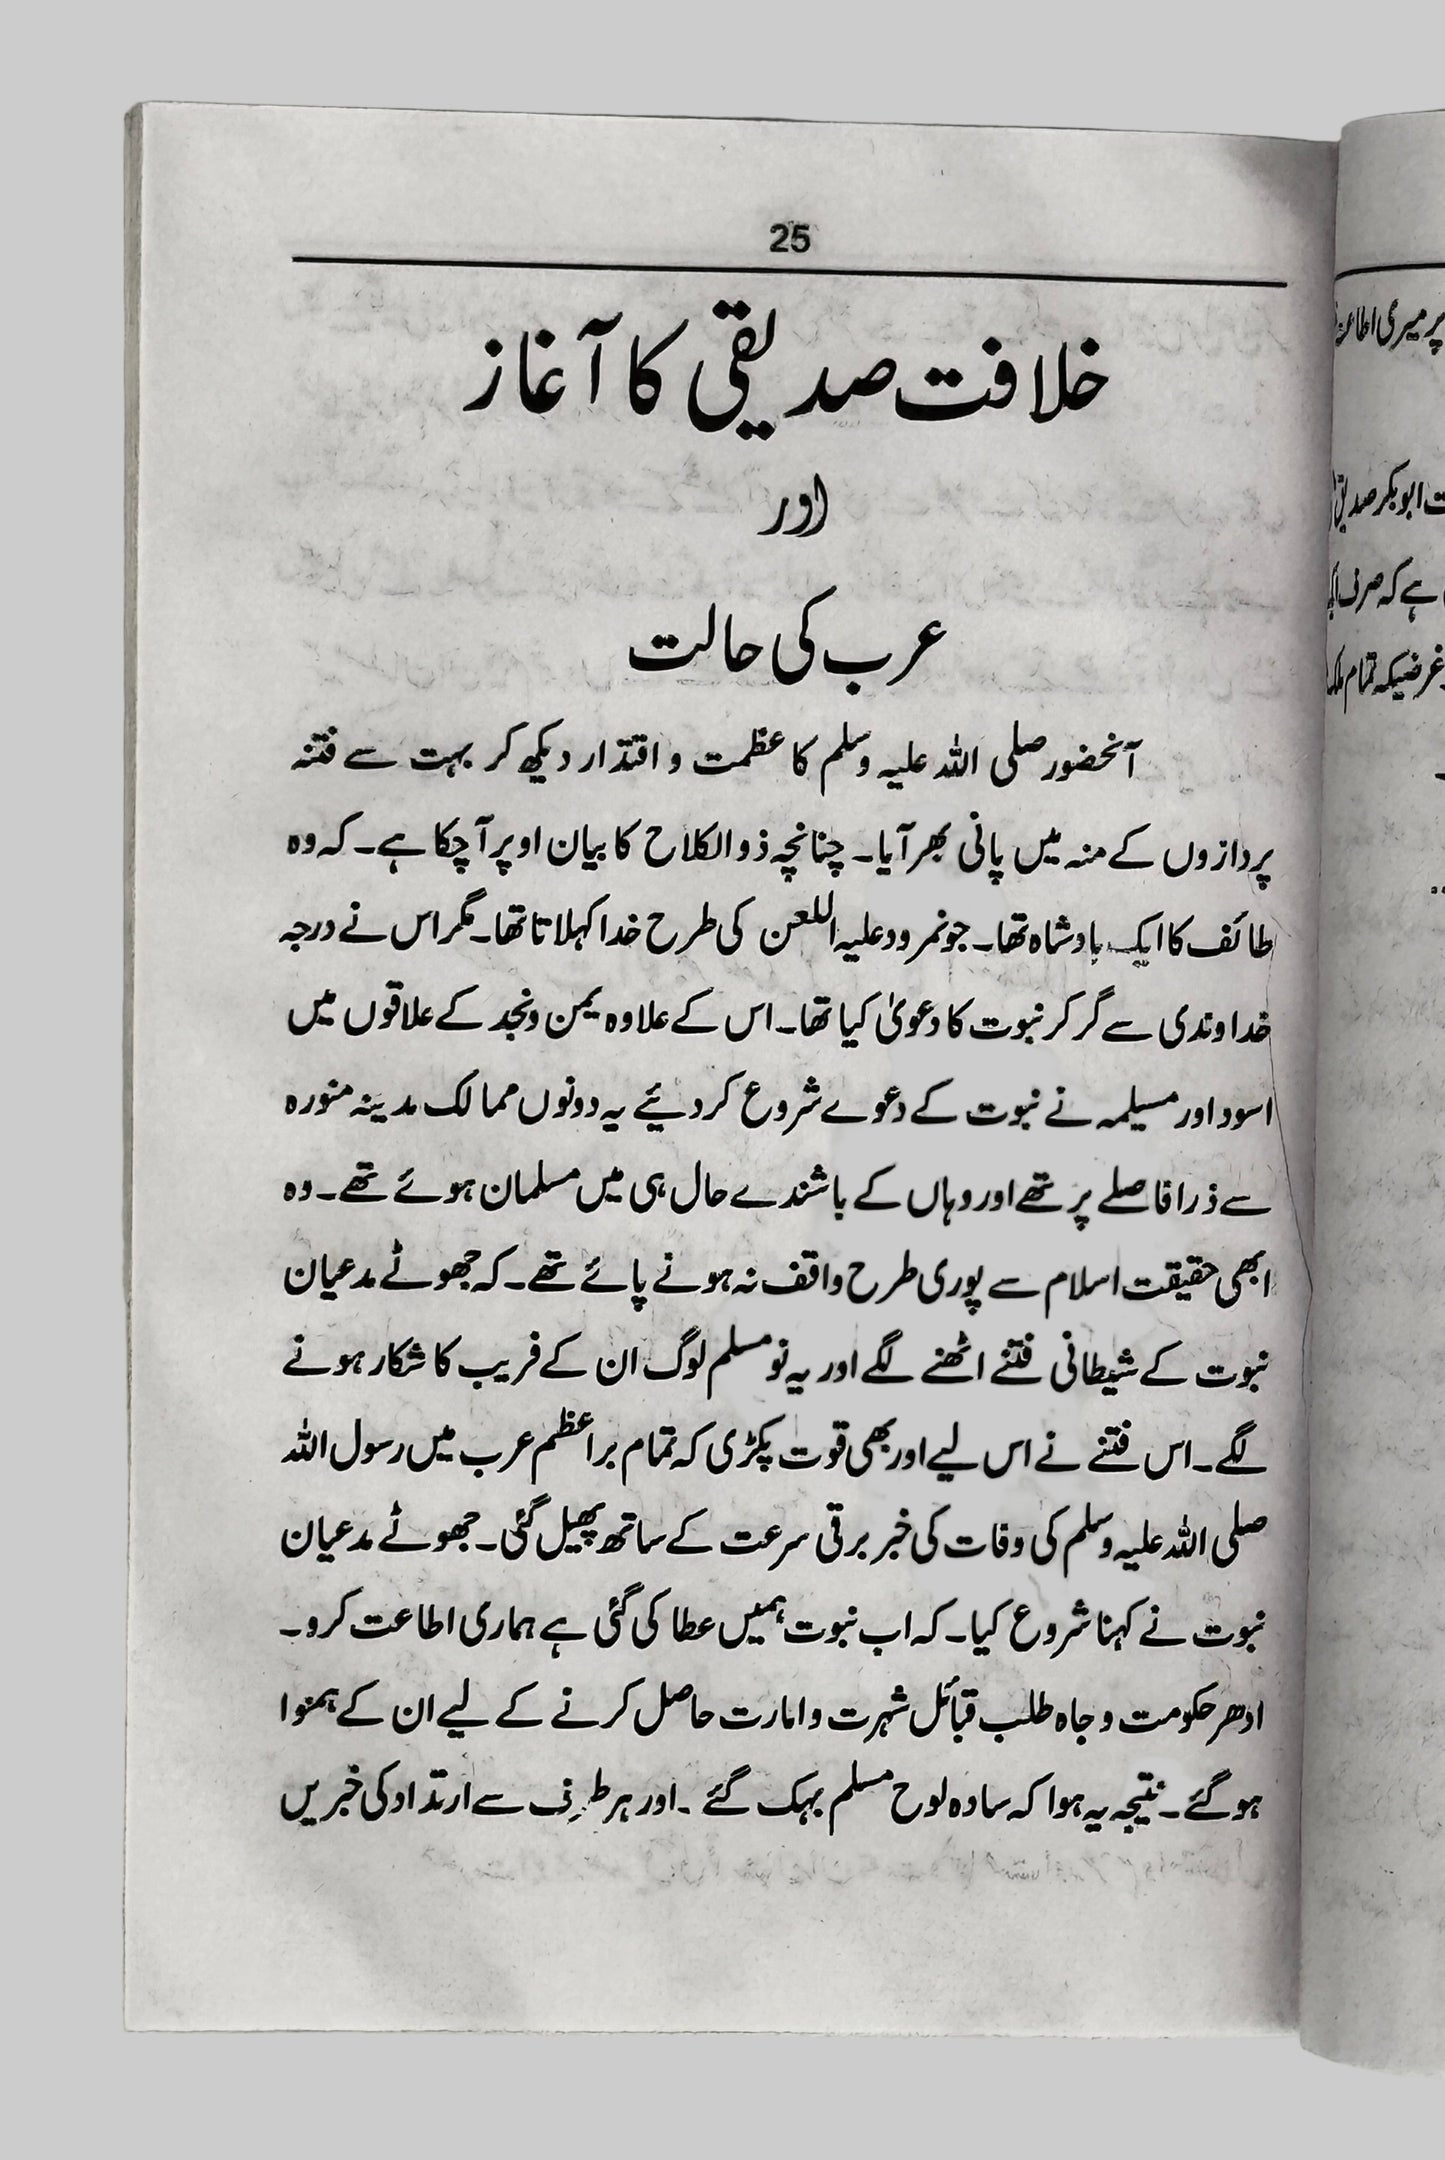 25
خلافت صدیقی کا آغاز
اور
عرب کی حالت
آنحضور صلی اللہ علیہ وسلم کا عظمت و اقتدار دیکھ کر بہت سے فتنہ
پردازوں کے منہ میں پانی بھر آیا۔ چنانچہ ذوالکلاح کا بیان اوپر آچکا ہے۔ کہ وہ
طائف کا ایک بادشاہ تھا۔ جو نمرود علیہ اللعن کی طرح خدا کہلاتا تھا۔ مگر اس نے درجہ
خداوندی سے گر کر نبوت کا دعویٰ کیا تھا۔ اس کے علاوہ یمن ونجد کے علاقوں میں
اسود اور مسیلمہ نے نبوت کے دعوے شروع کردئیے یہ دونوں ممالک مدینہ منورہ
سے ذرا فاصلے پر تھے اور وہاں کے باشندے حال ہی میں مسلمان ہوئے تھے۔ وہ
ابھی حقیقت اسلام سے پوری طرح واقف نہ ہونے پائے تھے۔ کہ جھوٹے مدعیان
نبوت کے شیطانی فتنے اٹھنے لگے اور یہ نو مسلم لوگ ان کے فریب کا شکار ہونے
لگے۔ اس فتنے نے اس لیے اور بھی قوت پکڑی کہ تمام براعظم عرب میں رسول اللہ
صلی اللہ علیہ وسلم کی وفات کی خبر برقی سرعت کے ساتھ پھیل گئی۔ جھوٹے مدعیان
نبوت نے کہنا شروع کیا۔ کہ اب نبوت ہمیں عطا کی گئی ہے ہماری اطاعت کرو۔
ادھر حکومت و جاہ طلب قبائل شہرت وامارت حاصل کرنے کے لیے ان کے ہمنوا
ہوگئے۔ نتیجہ یہ ہوا کہ سادہ لوح مسلم بہک گئے۔ اور ہر طرف سے ارتداد کی خبریں
پر میری
ابوبکر
ہے کہ صرف
غرضیکہ تمام